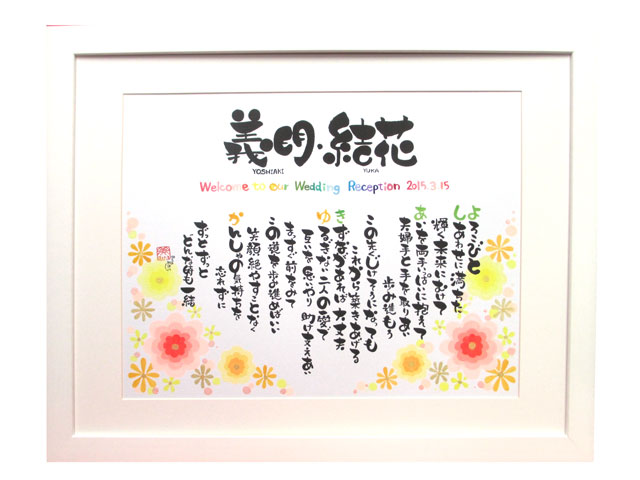 義明・結花
YOSHIAKI YUKA
Welcome to our Wedding Reception 2015.3.15
よろこびと
しあわせに満ちた
輝く未来にむけて
あいを両手いっぱいに抱えて
夫婦手と手を取りあい
歩み進もう
この先くじけそうになっても
これから築きあげる
きずながあれば大丈夫
ゆるぎない二人の愛で
互いを思いやり 助け支えあい
まっすぐ前をみて
この道を歩み進めばいい
笑顔絶やすことなく
かんしゃの気持ちを
忘れずに
ずっとずっと
どんな時も一緒